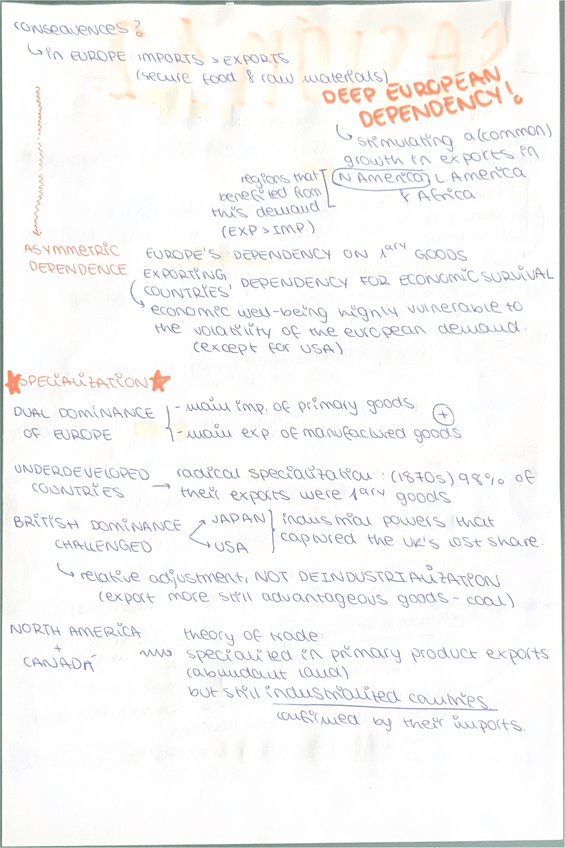 CONSEQUENCES?
↳ in EUROPE: IMPORTS > EXPORTS
(secure food & raw materials)
DEEP EUROPEAN
DEPENDENCY!
↳ stimulating a (common)
growth in exports in
regions that N America, L America
benefited from & Africa.
this demand
(EXP > IMP)
ASYMMETRIC EUROPE'S DEPENDENCY ON 1ary GOODS
DEPENDENCE EXPORTING
COUNTRIES' DEPENDENCY FOR ECONOMIC SURVIVAL
↳ economic well-being highly vulnerable to
the volatility of the european demand.
(except for USA)
★SPECIALIZATION★
DUAL DOMINANCE - main imp. of primary goods
OF EUROPE - main exp. of manufactured goods +
UNDERDEVELOPED → radical specialization: (1870s) 98% of
COUNTRIES their exports were 1ary goods
BRITISH DOMINANCE → JAPAN industrial powers that
CHALLENGED → USA captured the UK's lost share.
↳ relative adjustment, NOT DEINDUSTRIALIZATION
(export more still advantageous goods - coal)
NORTH AMERICA theory of trade:
+ specialized in primary product exports
CANADA (abundant land)
but still industrialized countries
confirmed by their imports.